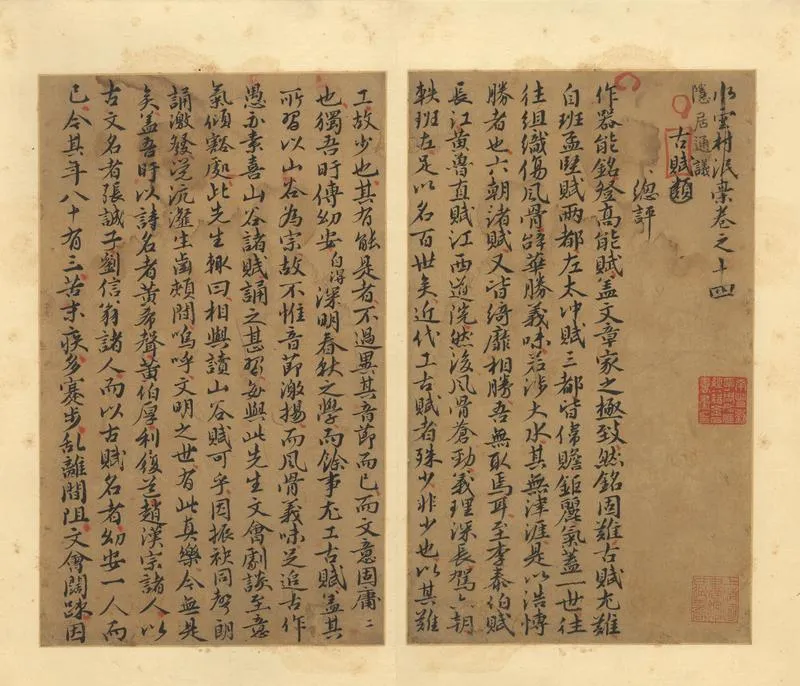 水雲村泯稾卷之十四
隱居通議
古賦類
總評
作器能銘登高能賦蓋文章家之極致然銘固難古賦尤難
自班孟堅賦兩都左太冲賦三都皆偉贍鉅麗氣蓋一世往
往組織傷風骨辭華勝義味若涉大水其無津涯是以浩愽
勝者也六朝諸賦又皆綺靡相勝吾無取焉耳至李泰伯賦
長江黄魯直賦江西道院然後風骨蒼勁義理深長駕六朝
軼班左足以名百世矣近代工古賦者殊少非少也以其難
工故少也其有能是者不過異其音節而已而文意固庸〻
也獨吾旴傅幼安自得深明春秋之學而餘事尤工古賦盖其
所習以山谷為宗故不惟音節激揚而風骨義味足追古作
愚亦素喜山谷諸賦誦之甚習每與此先生文會劇談至意
氣傾豁處此先生輙曰相與讀山谷賦可乎因振袂同聲朗
誦激發沆瀣生齒頰間嗚呼文明之世有此真樂今無是
矣盖吾旴以詩名者黄希聲黄伯厚利復趙漢宗諸人以
古文名者張誠子劉信翁諸人而以古賦名者幼安一人而
已今其年八十有三苦末疾多蹇步乱離間阻文會闊踈因